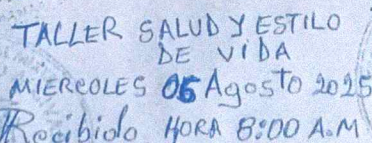 TALLER SALUD Y ESTILO
DE VIDA
MIERCOLES 06 Agosto 2025
Recibido HORA 8:00 A.M